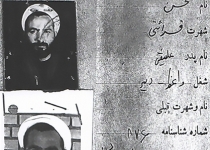 نام محسن
شهرت قرائتی
نام پدر علینقی
شغل واعظ دینی
نام وشهرت قبلی
شماره شناسنامه ۱۷۶